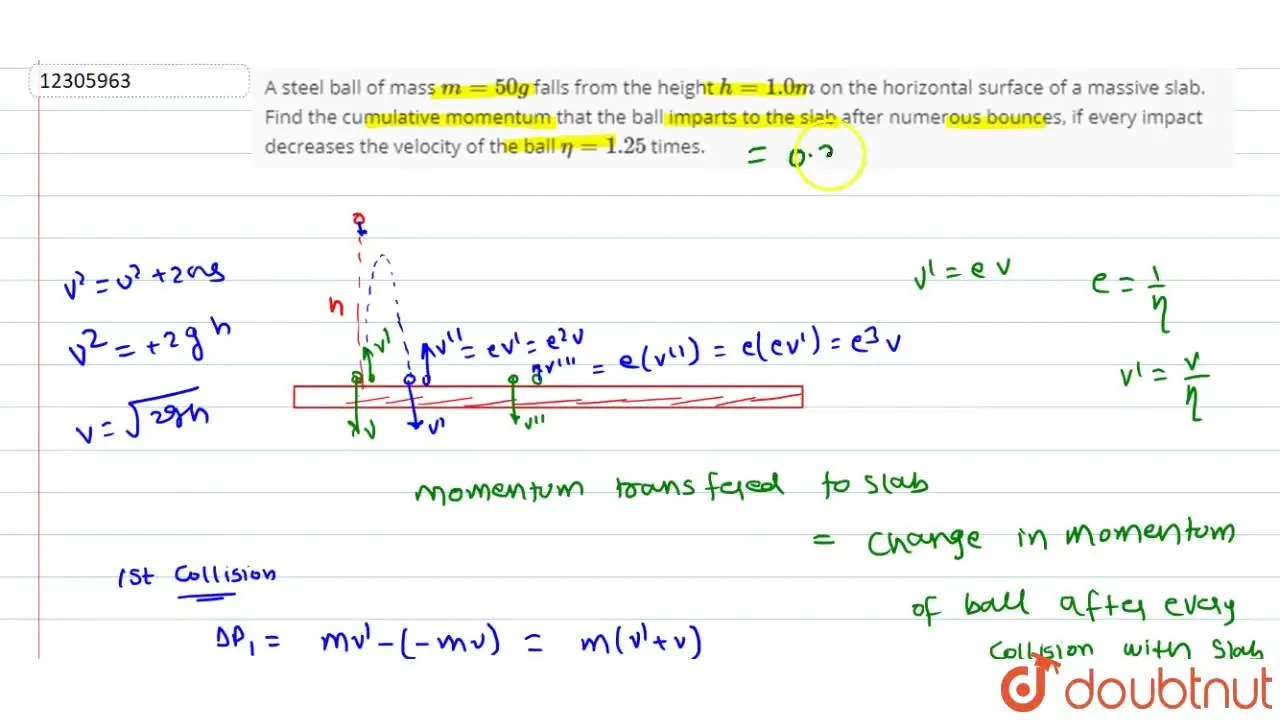 12305963
A steel ball of mass m = 50g falls from the height h = 1.0m on the horizontal surface of a massive slab.
Find the cumulative momentum that the ball imparts to the slab after numerous bounces, if every impact
decreases the velocity of the ball η = 1.25 times.
= 0.2
v² = u² + 2as
v² = +2gh
v = √2gh
h
v'
v'' = ev' = e²v
v''' = e(v'') = e(ev') = e³v
v
v'
v''
v' = ev
e = 1/η
v' = v/η
momentum transfered to slab
= change in momentum
of ball after every
collision with slab
1st Collision
ΔP₁ = mv' - (-mv) = m(v' + v)
doubtnut